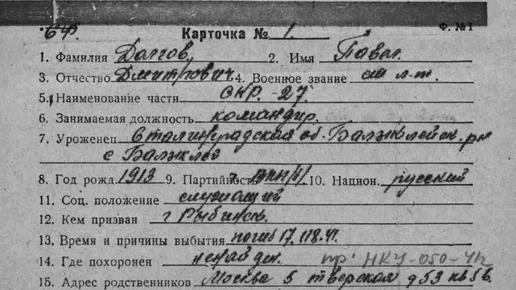 Карточка № 1. Ф. № 1
1. Фамилия Долгов 2. Имя Павел
3. Отчество Дмитрович 4. Военное звание см л-т.
5. Наименование части СКР-27
6. Занимаемая должность командир
7. Уроженец Сталинградская об. Балыклейск. р-н
с Балыклей
8. Год рожд. 1913 9. Партийность ВКП(б) 10. Национ. русский
11. Соц. положение служащий
12. Кем призван г Рыбинск
13. Время и причины выбытия погиб 17.
14. Где похоронен пр: НКУ-050-
15. Адрес родственников Москва 5 тверская д 53 кв